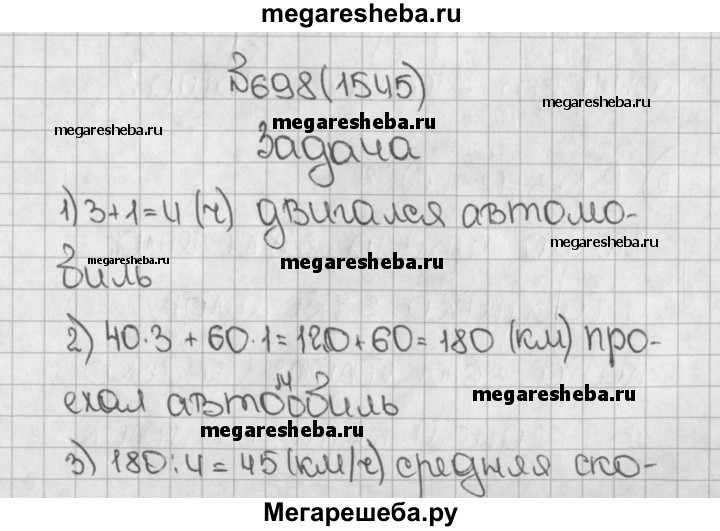 megaresheba.ru
№698(1545)
megaresheba.ru
megaresheba.ru
megaresheba.ru
Задача
1) 3+1=4 (ч) двигался автомо-
биль
megaresheba.ru
megaresheba.ru
megaresheba.ru
2) 40·3 + 60·1=120+60= 180 (км) про-
ехал автомобиль
megaresheba.ru
megaresheba.ru
3) 180:4=45 (км/ч) средняя ско-
Мегарешеба.ру